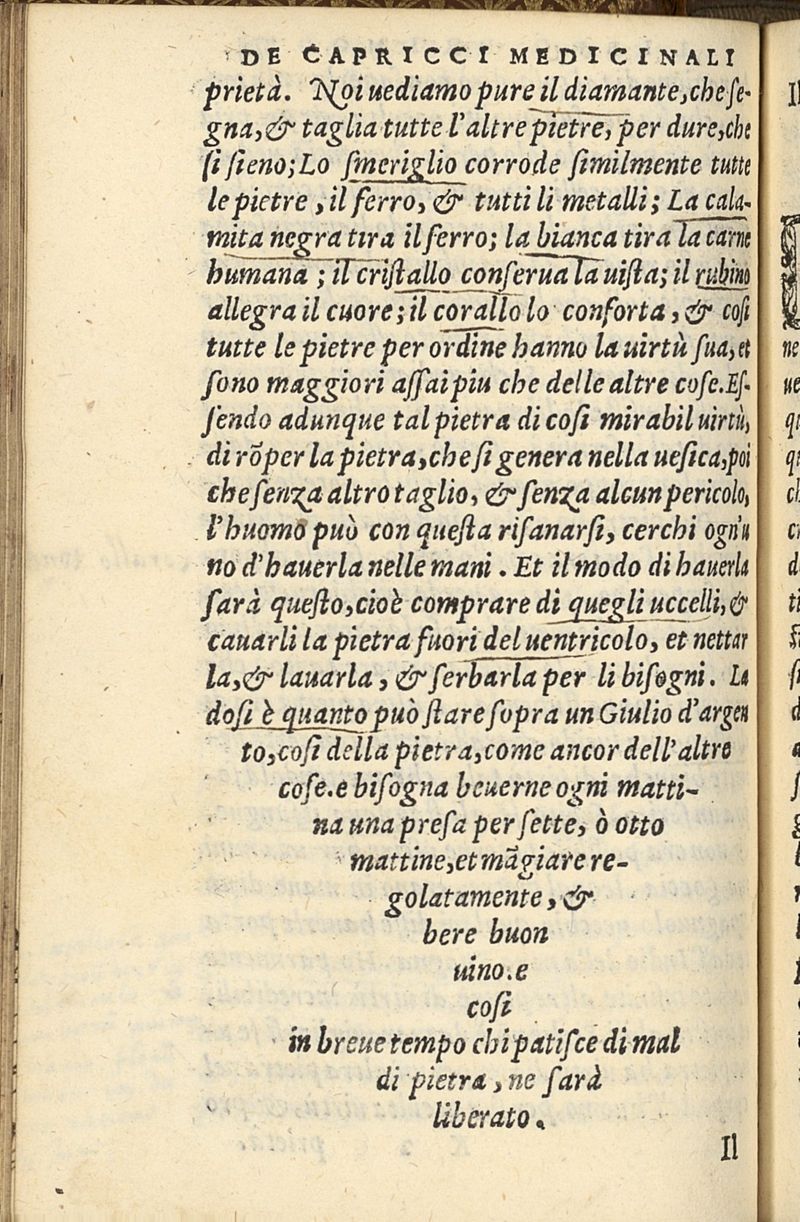 DE CAPRICCI MEDICINALI
prietà. Noi uediamo pure il diamante, che ſe-
gna, & taglia tutte l'altre pietre, per dure, che
ſi ſieno; Lo ſmeriglio corrode ſimilmente tutte
le pietre, il ferro, & tutti li metalli; La cala-
mita negra tira il ferro; la bianca tira la carne
humana; il criſtallo conſerua la uiſta; il rubino
allegra il cuore; il corallo lo conforta, & coſi
tutte le pietre per ordine hanno la uirtù ſua, et
ſono maggiori aſſai piu che delle altre coſe. Eſ-
ſendo adunque tal pietra di coſi mirabil uirtù,
di rõper la pietra, che ſi genera nella ueſica, poi
che ſenza altro taglio, & ſenza alcun pericolo,
l'huomo può con queſta riſanarſi, cerchi ogn'u
no d'hauerla nelle mani. Et il modo di hauerla
ſarà queſto, cioè comprare di quegli uccelli, &
cauarli la pietra fuori del uentricolo, et nettar
la, & lauarla, & ſerbarla per li biſogni. La
doſi è quanto può ſtare ſopra un Giulio d'argen
to, coſi della pietra, come ancor dell'altre
coſe. e biſogna beuerne ogni matti-
na una preſa per ſette, ò otto
mattine, et mãgiare re-
golatamente, &
bere buon
uino. e
coſi
in breue tempo chi patiſce di mal
di pietra, ne ſarà
liberato.
Il